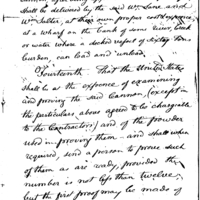 shall be delivered by the said Wm Lane and
Wm Salter, at their own proper cost & expence
at a wharf on the bank of some river, creek
or water where a decked vessel of fifty tons
burden, can load and unload.
Fourteenth. That the United States
shall be at the expence of examining
and proving the said Cannon (except in
the particulars above agreed to be chargeable
to the Contractors) and of the powder
used in proving them and shall when
required, send a person to prove such
of them as are ready, provided the
number is not less than twelve,
but the first proof may be made of